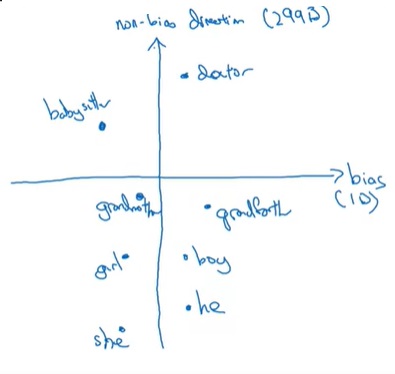 non-bias direction (299D)
doctor
babysitter
bias
(1D)
grandmother
grandfath
girl
boy
he
she